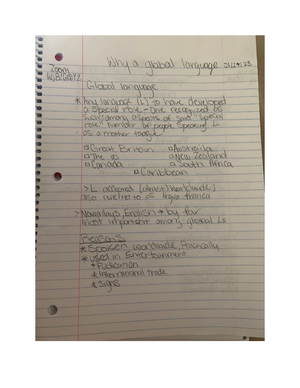 Why a global language
Zoom
Global language
* Any language (L) to have developed
a special role - One recognized as
such; among aspects of said "special
role" number of people speaking L
as a mother tongue
□ Great Britain □ Australia
□ The US □ New Zealand
□ Canada □ South Africa
□ Caribbean
> L accepted (almost) worldwide;
also referred to as lingua franca
> Nowadays, English is by far
most important among global Ls
Reasons
* Spoken worldwide,
* Used in Entertainment
* Publication
* International trade
* Signs